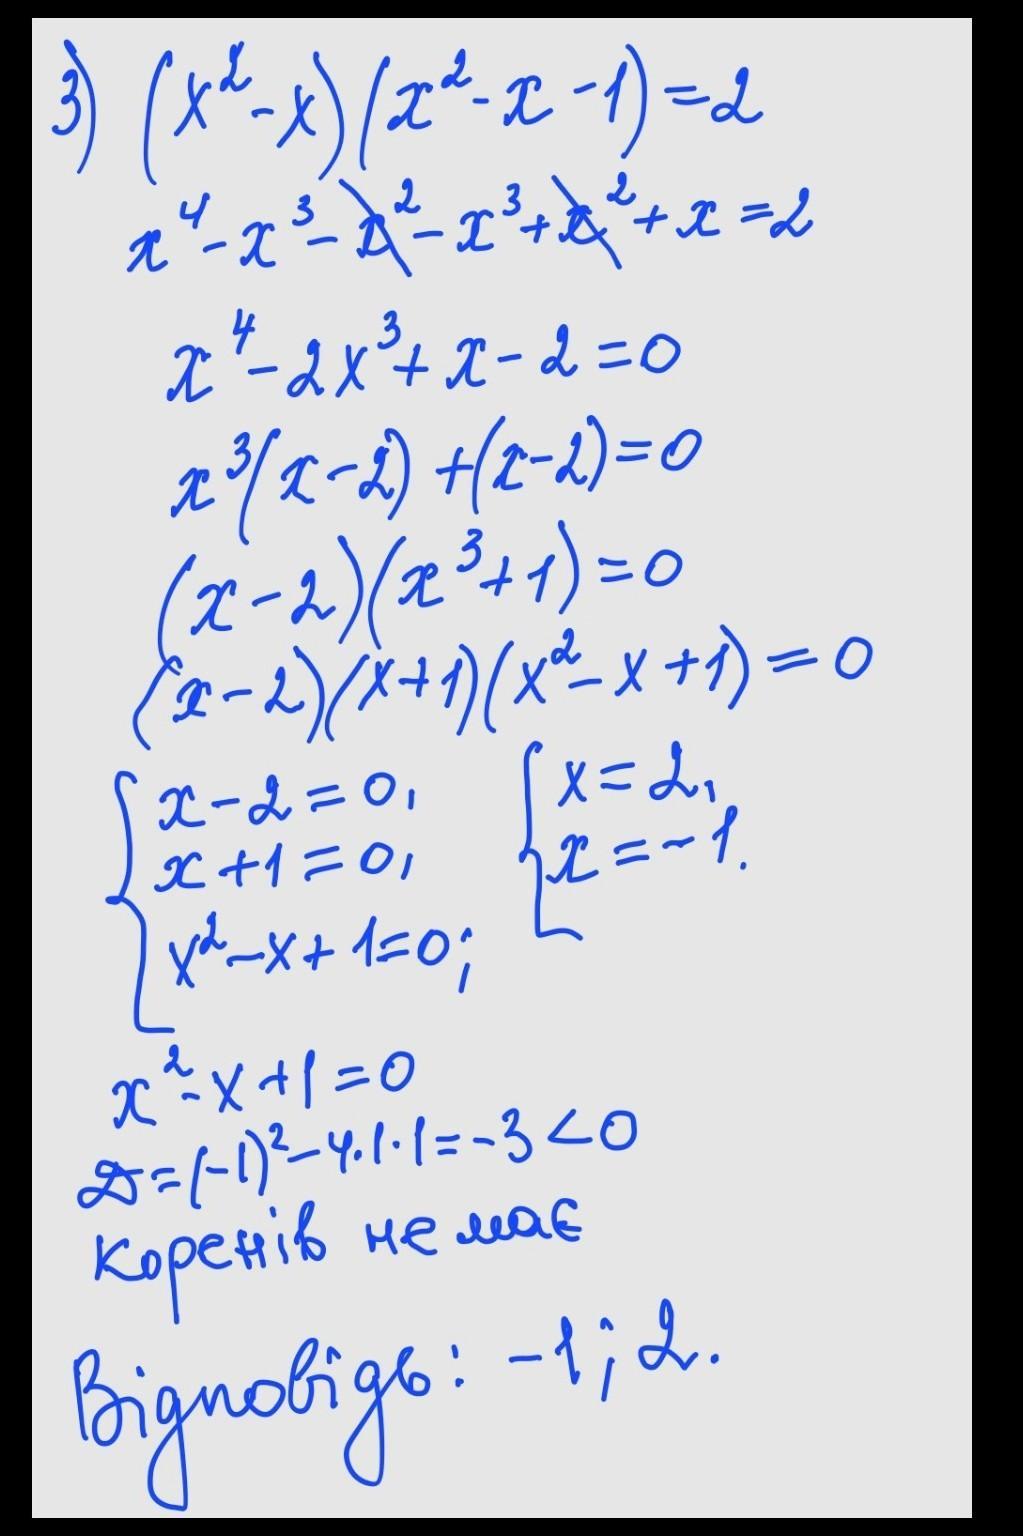 3) (x² - x)(x² - x - 1) = 2
x⁴ - x³ - x² - x³ + x² + x = 2
x⁴ - 2x³ + x - 2 = 0
x³(x - 2) + (x - 2) = 0
(x - 2)(x³ + 1) = 0
(x - 2)(x + 1)(x² - x + 1) = 0
x - 2 = 0,
x + 1 = 0,
x² - x + 1 = 0;
x = 2,
x = -1.
x² - x + 1 = 0
D = (-1)² - 4·1·1 = -3 < 0
коренів не має
Відповідь: -1; 2.